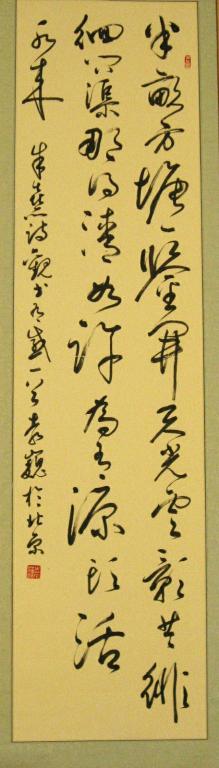 半畝方塘一鑒開天光雲影共徘
徊問渠那得清如許為有源頭活
水來 朱熹詩觀書有感一首 於北京